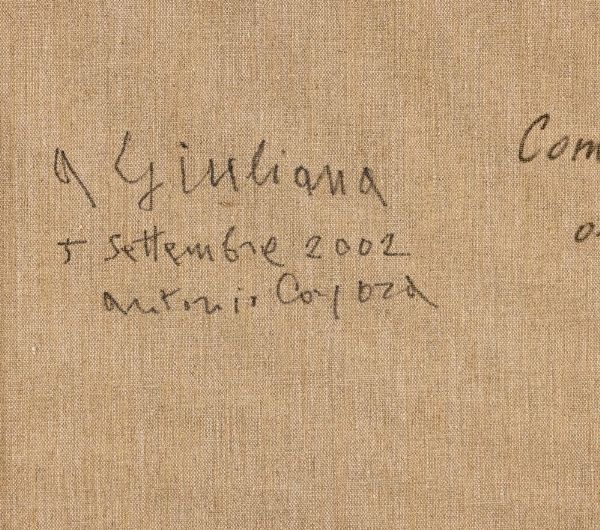 a Giuliana
5 settembre 2002
antonio Corpora
Com